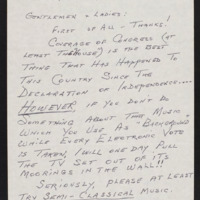 GENTLEMEN & LADIES:
FIRST OF ALL - THANKS!
COVERAGE OF CONGRESS (AT
LEAST THE HOUSE) IS THE BEST
THING THAT HAS HAPPENED TO
THIS COUNTRY SINCE THE
DECLARATION OF INDEPENDENCE....
HOWEVER IF YOU DON'T DO
SOMETHING ABOUT THE MUSIC
WHICH YOU USE AS "BACKGROUND"
WHILE EVERY ELECTRONIC VOTE
IS TAKEN, I WILL ONE DAY PULL
THE TV SET OUT OF ITS
MOORINGS IN THE WALL!!
SERIOUSLY, PLEASE AT LEAST
TRY SEMI-CLASSICAL MUSIC.